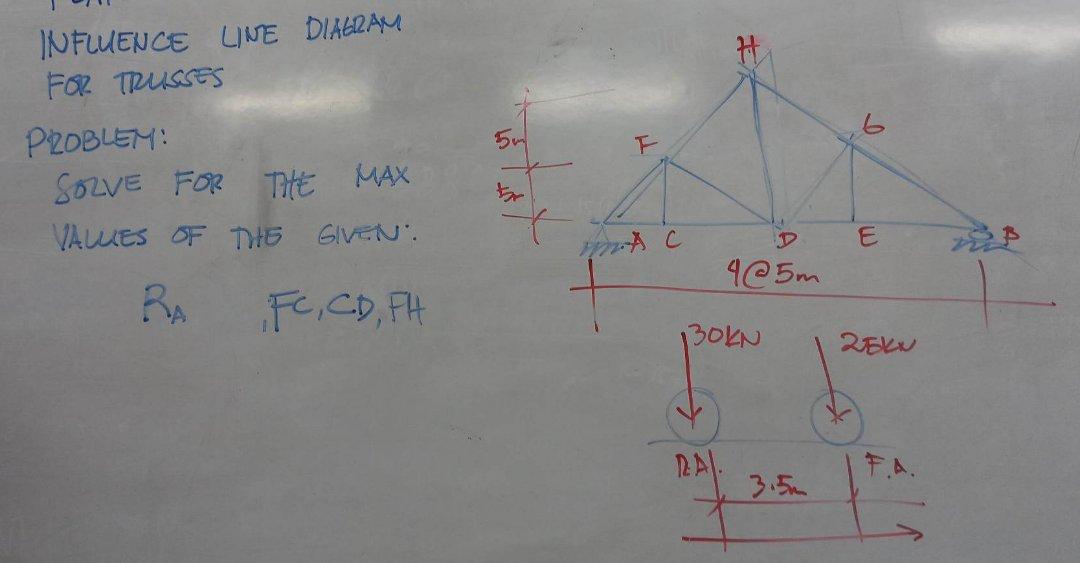 INFLUENCE LINE DIAGRAM
FOR TRUSSES
PROBLEM:
SOLVE FOR THE MAX
VALUES OF THE GIVEN:
RA ,FC,CD,FH
H
5m
F
G
5m
A C D E B
4@5m
30KN 25KN
R.A. F.A.
3.5m